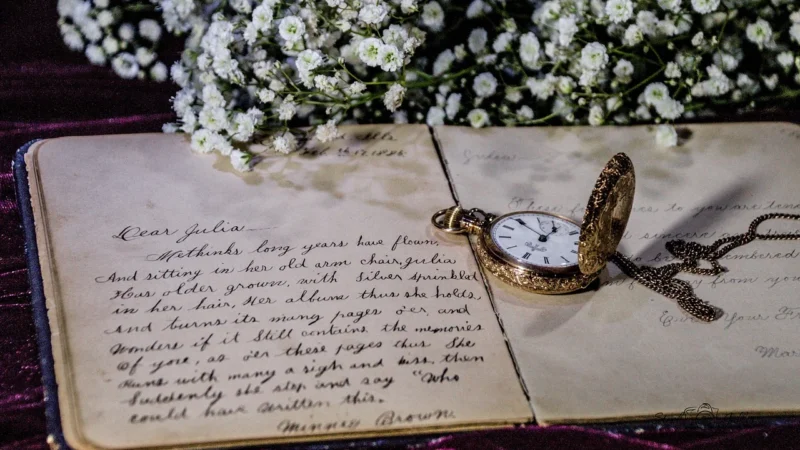 Dear Julia —
Methinks long years have flown,
And sitting in her old arm chair, Julia
Has older grown, with Silver sprinkled
in her hair, Her album thus she holds
And turns its many pages o'er, and
Wonders if it Still contains the memories
Of yore, as o'er these pages thus She
Runs with many a sigh and kiss, then
Suddenly she stop and say "Who
could have written this.
Minnie Brown
Julia
These to you are
sincere
embered
from you
Your